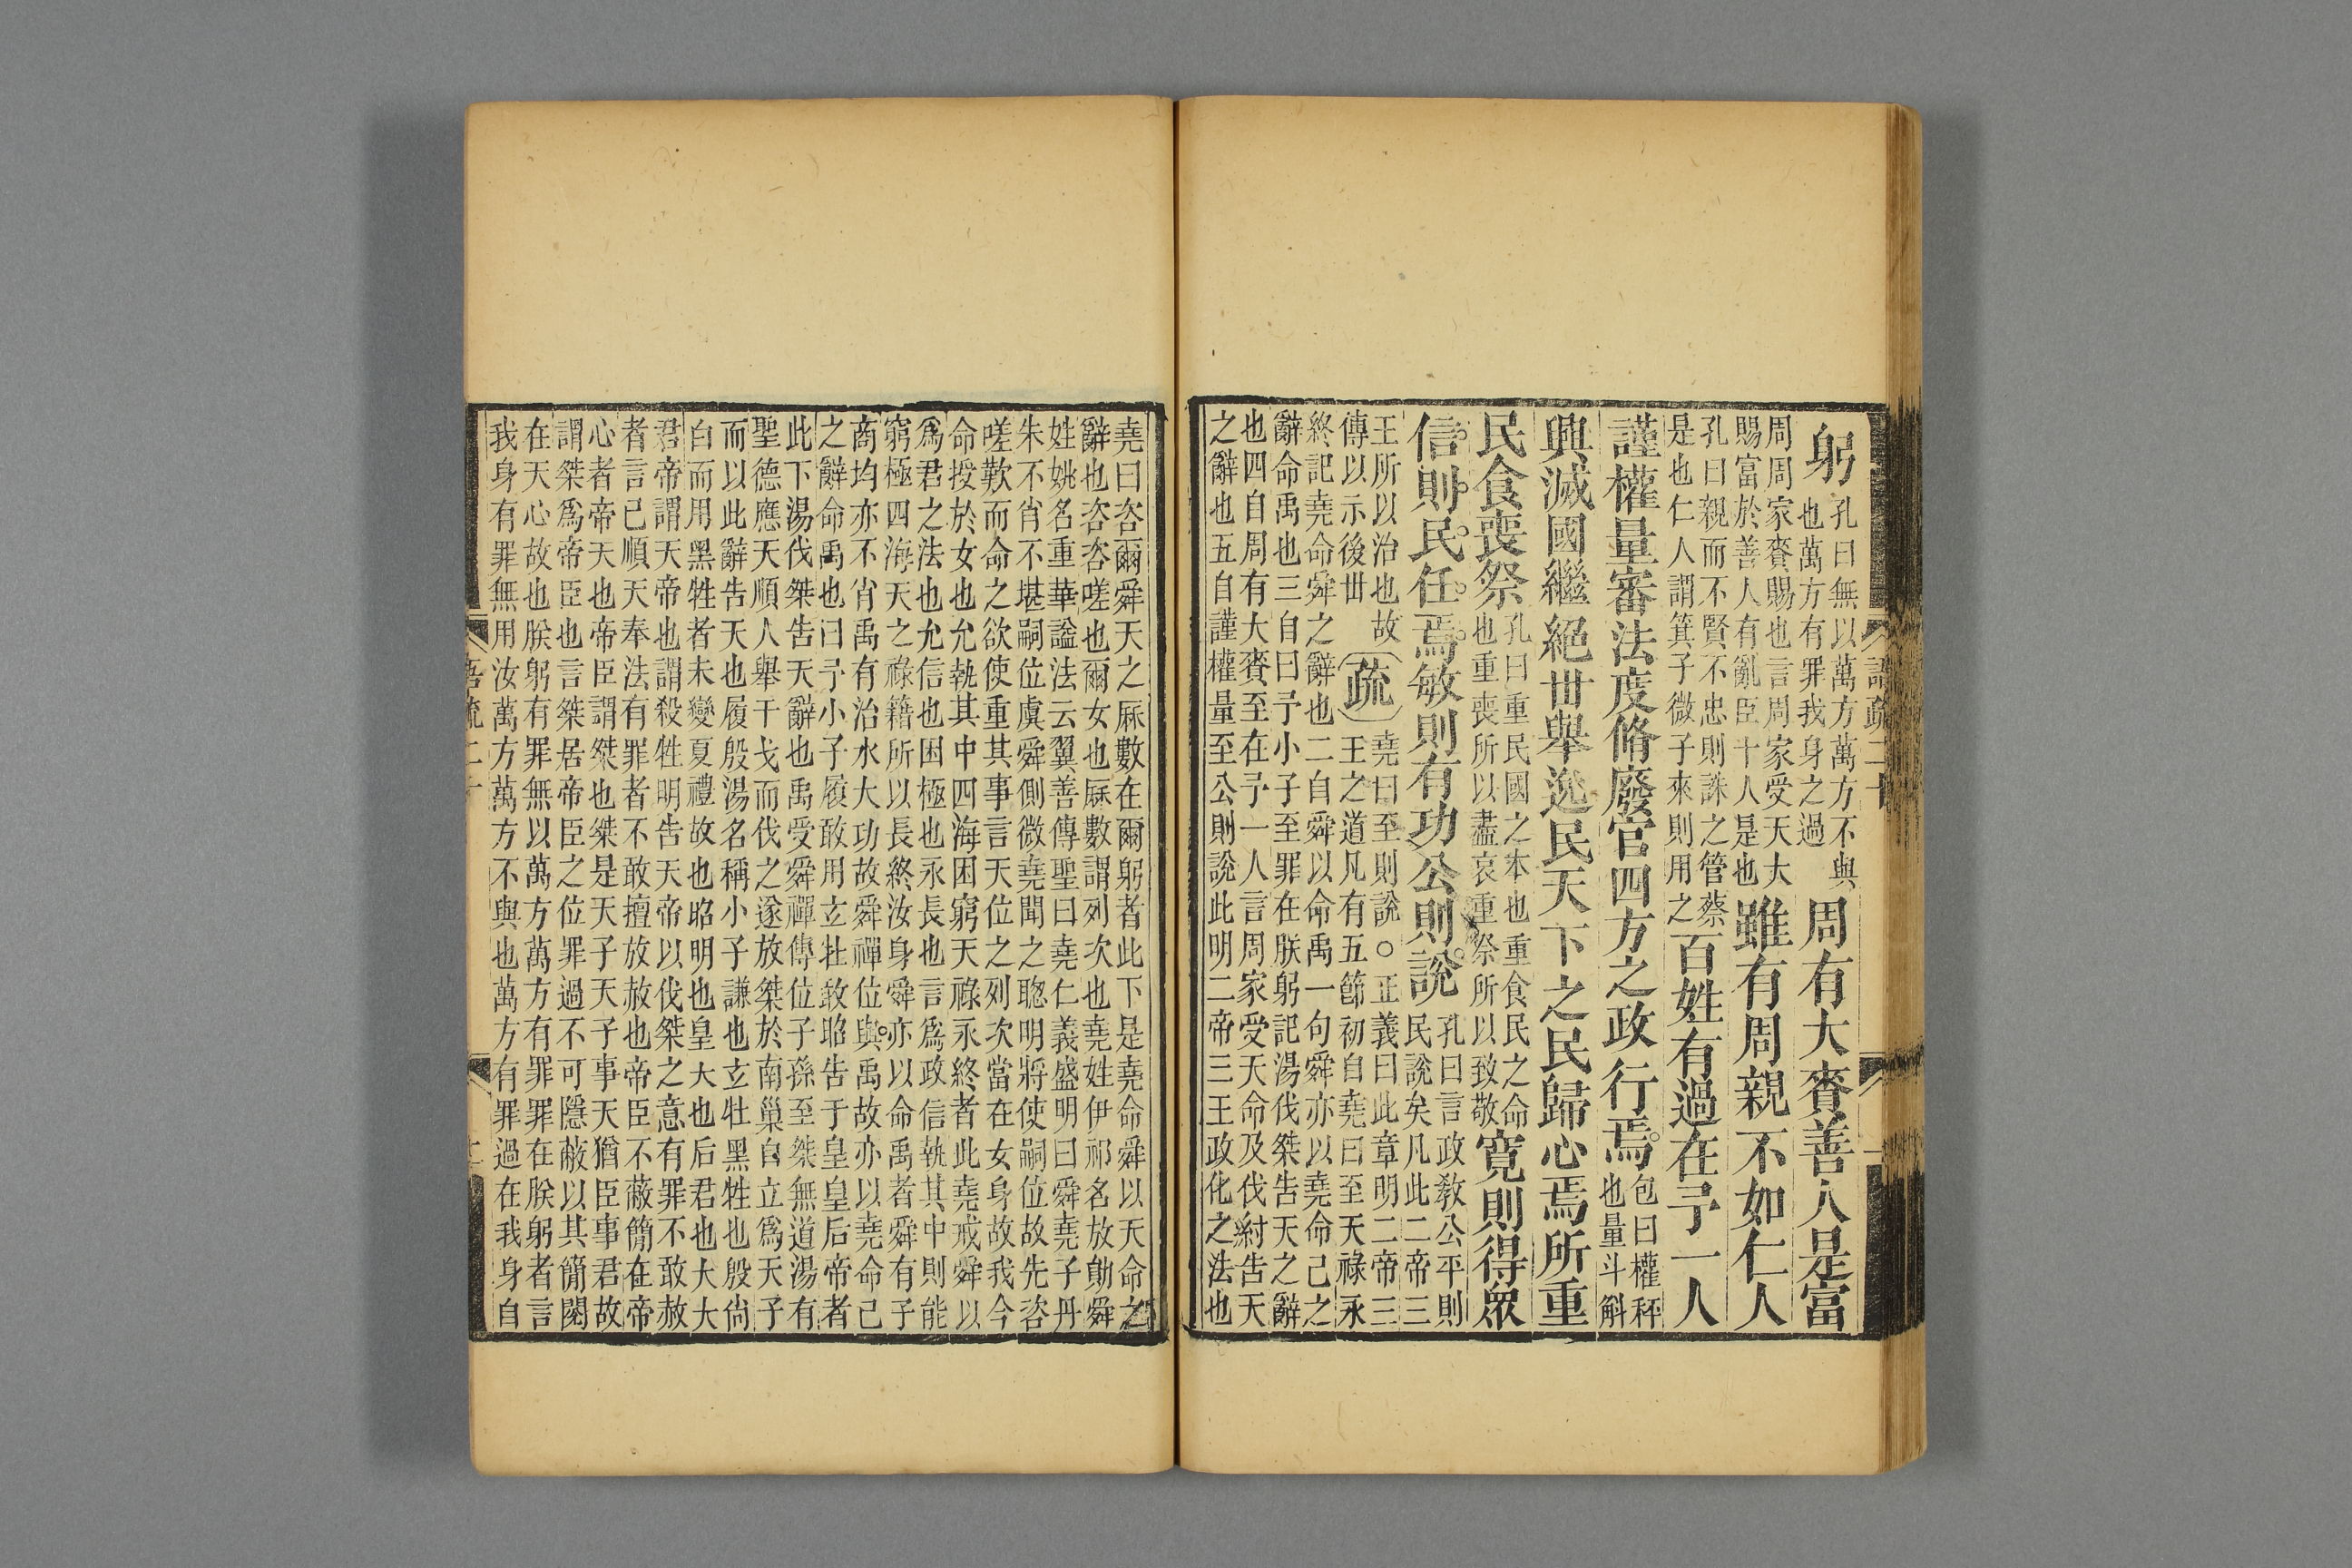 躬孔曰無以萬方萬方不與也萬方有罪我身之過周有大賚善人是富
周周家賚賜也言周家受天大賜富於善人有亂臣十人是也雖有周親不如仁人
孔曰親而不賢不忠則誅之管蔡是也仁人謂箕子微子來則用之百姓有過在予一人
謹權量審法度脩廢官四方之政行焉包曰權秤也量斗斛
興滅國繼絕世舉逸民天下之民歸心焉所重
民食喪祭孔曰重民國之本也重食民之命也重喪所以盡哀重祭所以致敬寬則得眾
信則民任焉敏則有功公則說孔曰言政教公平則民說矣凡此二帝三
王所以治也故傳以示後世疏堯曰至則說○正義曰此章明二帝三王之道凡有五節初自堯曰至天祿永
終記堯命舜之辭也二自舜以命禹一句舜亦以堯命己之
辭命禹也三自曰予小子至罪在朕躬記湯伐桀告天之辭
也四自周有大賚至在予一人言周家受天命及伐紂告天
之辭也五自謹權量至公則說此明二帝三王政化之法也
堯曰咨爾舜天之厤數在爾躬者此下是堯命舜以天命之
辭也咨咨嗟也爾女也厤數謂列次也堯姓伊祁名放勛舜
姓姚名重華謚法云翼善傳聖曰堯仁義盛明曰舜堯子丹
朱不肖不堪嗣位虞舜側微堯聞之聰明將使嗣位故先咨
嗟歎而命之欲使重其事言天位之列次當在女身故我今
命授於女也允執其中四海困窮天祿永終者此堯戒舜以
爲君之法也允信也困極也永長也言爲政信執其中則能
窮極四海天之祿籍所以長終汝身舜亦以命禹者舜有子
商均亦不肖禹有治水大功故舜禪位與禹故亦以堯命己
之辭命禹也曰予小子履敢用玄牡敢昭告于皇皇后帝者
此下湯伐桀告天辭也禹受舜禪傳位子孫至桀無道湯有
聖德應天順人舉干戈而伐之遂放桀於南巢自立爲天子
而以此辭告天也履殷湯名稱小子謙也玄牡黑牲也殷尚
白而用黑牲者未變夏禮故也昭明也皇大也后君也大大
君帝謂天帝也謂殺牲明告天帝以伐桀之意有罪不敢赦
者言已順天奉法有罪者不敢擅放赦也帝臣不蔽簡在帝
心者帝天也帝臣謂桀也桀是天子天子事天猶臣事君故
謂桀爲帝臣也言桀居帝臣之位罪過不可隱蔽以其簡閱
在天心故也朕躬有罪無以萬方萬方有罪罪在朕躬者言
我身有罪無用汝萬方萬方不與也萬方有罪過在我身自
語疏二十